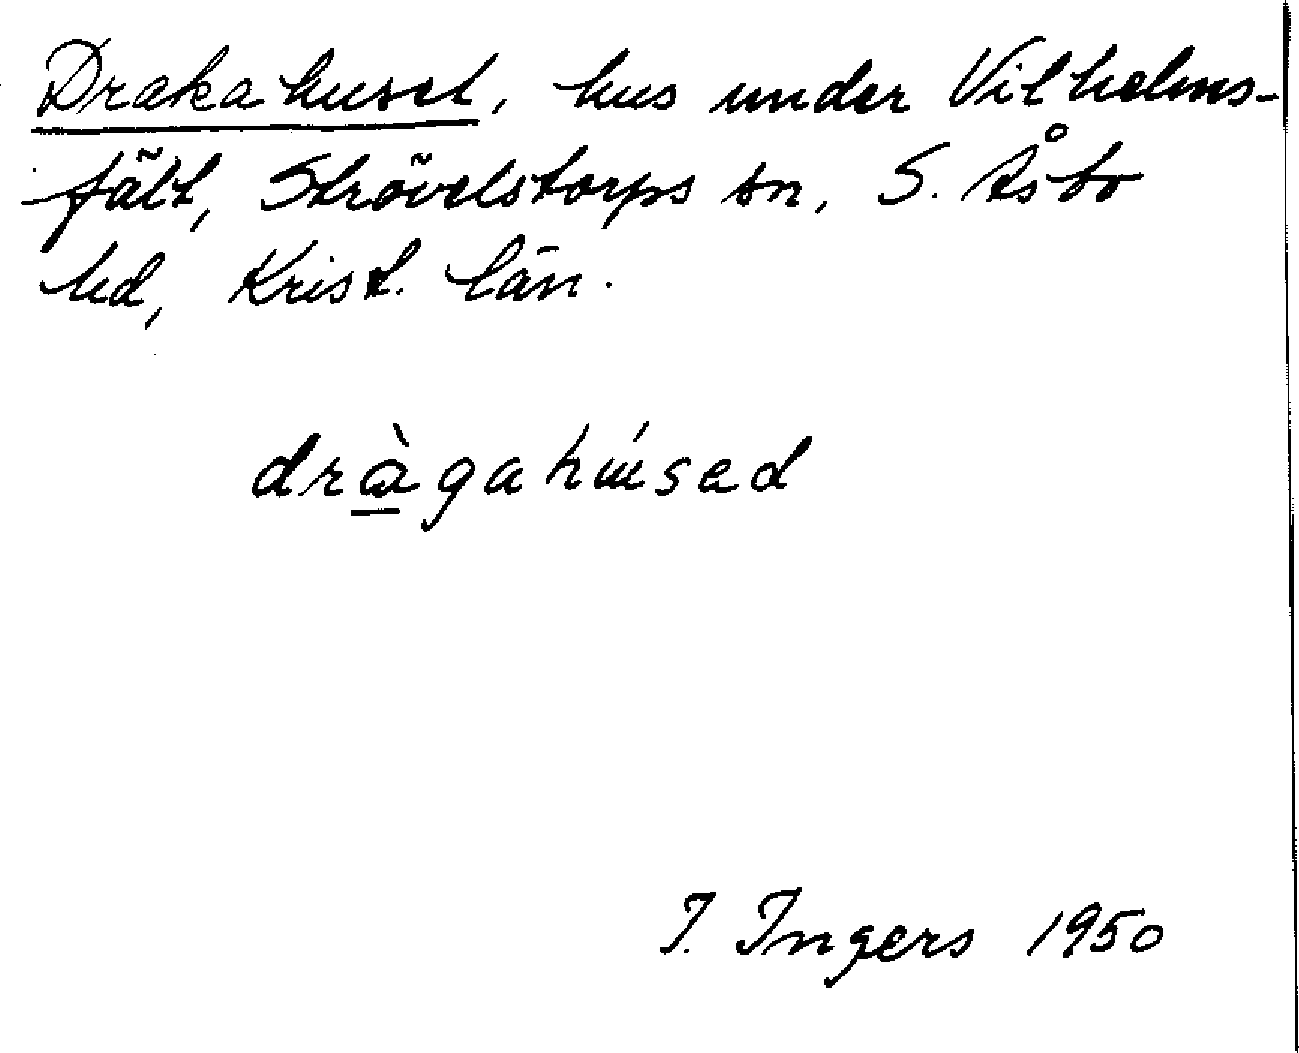 Drakahuset, hus under Vilhelms-
fält, Strövelstorps sn, S. Åsbo
hd, Krist. län.
dràgahúsad
I. Ingers 1950